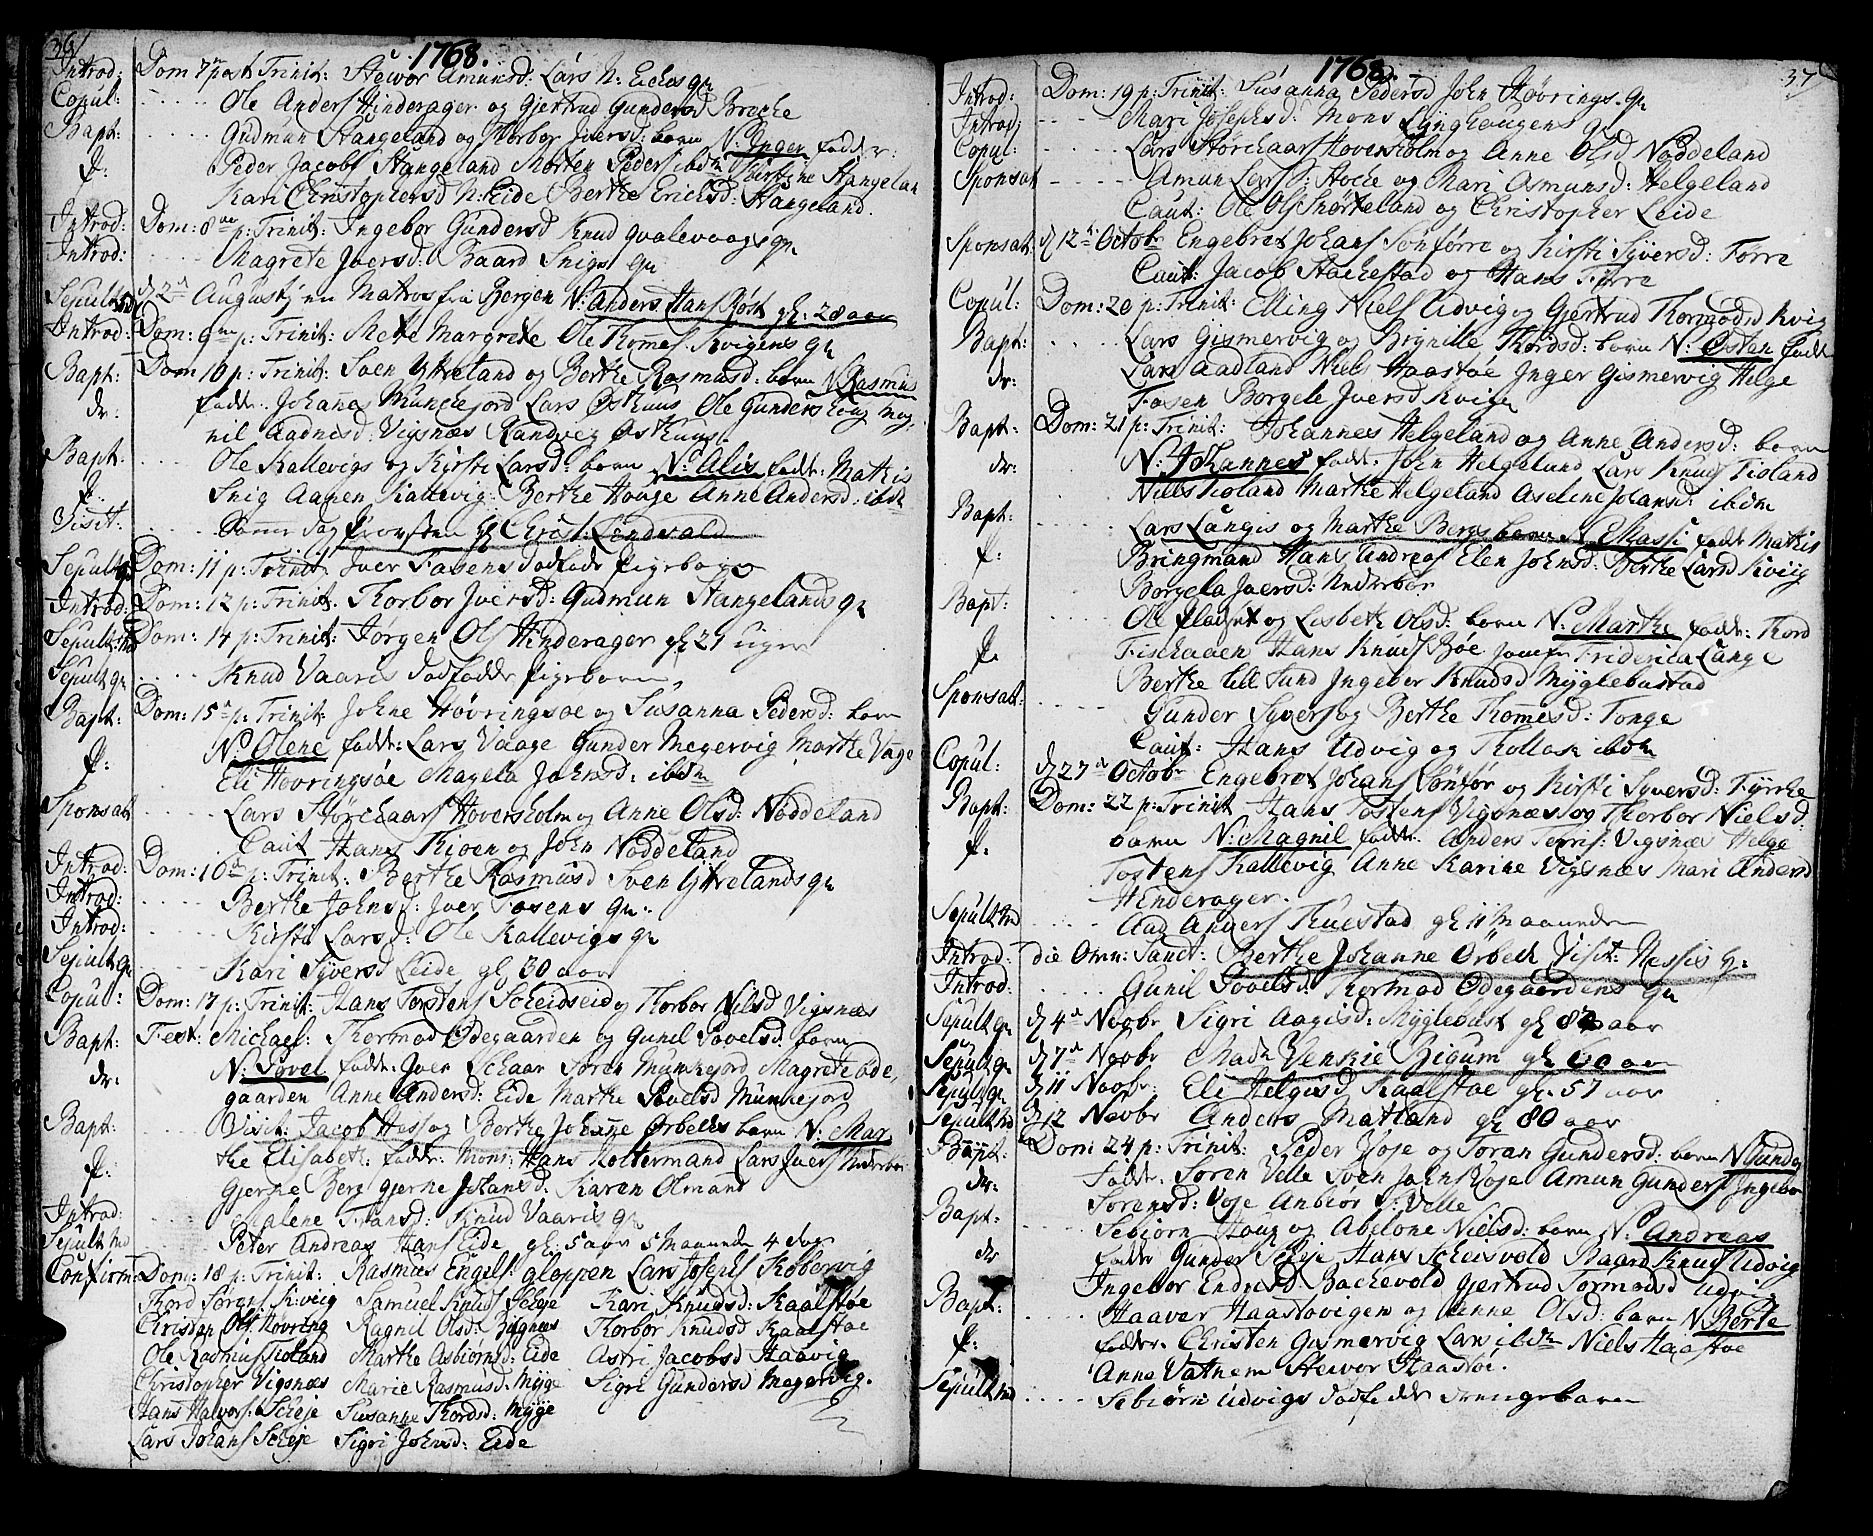 36
1768.
Introd: Dom 7 post Trinit: Stevor Amunsd: Lars N: Eides qv
Copul: Ole Anders Hinderager og Gjertrud Gundersd Brecke
Bapt: Gudmun Stangeland og Thorbor Iversd: barn N: Inger fadder:
f: Peder Jacobs Stangeland Morten Peders ibdm Stangelan
Kari Christophersd N: Eide Berthe Erichsd: Stangeland.
Introd: Dom: 8 p: Trinit: Ingebor Gundersd Knud qvalevaags qv
Introd: Magrete Iversd: Baard Snigs qv
Sepult d 2 Augustj en Matros fra Bergen N: Anders Hans gl: 28 aar
Introd: Dom: 9 p: Trinit: Mette Margrete Ole Thomes Kvigens qv
Bapt: Dom 10 p: Trinit: Sven Ytreland og Berthe Rasmusd: barn N Rasmus
dr: fadder: Johannes Munckejord Lars Østhuus Ole Gunders Houg Mag,
nil Aadnesd: Vigsnæs Randveg Østhuus.
Bapt: Ole Kallevigs og Kirsti Larsd: barn N: Alis fadder: Mathis
f: Snig Aanen Kallevig: Berthe Houge Anne Andersd: ibdm
Visit: Samme dag Provsten H Christ: Lindvald
Sepult qv Dom: 11 p: Trinit: Iver Fosens dødfødde pigebarn
Introd: Dom: 12 p: Trinit. Thorbor Iversd: Gudmun Stangelands qv
Sepult: Dom: 14 p: Trinit: Jørgen Ols Hinderager gl 21 uger
Sepult qv Knud Vaaris dødfødde pigebarn,
Bapt: Dom: 15 p: Trinit: Johne Høvringsøe og Susanna Pedersd: barn
f: N: Olene fadder: Lars Vaage Gunder Megervig Marthe Vage
Eli Hovringsøe Magela Johnsd: ibdm
Sponsat Lars Størchaars Hoversholm og Anne Olsd: Nøddeland
Caut Hans Kioen og John Nøddeland
Introd: Dom: 16 p: Trinit: Berthe Rasmusd Sven Ytrelands qv
Introd: Berthe Johnsd: Iver Fosens qv:
Introd: Kirsti Larsd: Ole Kallevigs qv
Sepult qv Kari Syversd Leide gl: 30 aar
Copul: Dom: 17 p: Trinit: Hans Torstens Scheidseid og Thorbor Nilsd Vigsnæs
Bapt: Fest: Michael: Thormod Ødegaarden og Gunil Povelsd: barn
dr: N: Povel fadder: Iver Schaar Søren Munckejord Magrete Øde,
gaarden Anne Andersd: Eide Marthe Povelsd Munkejord
Bapt: Visit: Jacob Hess og Berthe Johanne Ørbechs barn N: Mar
f: the Elisabeth: fadder: Mons: Hans Koltermand Lars Ivers Underbar
Gjerthe Berg gjerthe Johansd: Karen Olmand
Introd: Malene Hansd: Knud Vaaris qv
Sepult md Peter Andreas Hans Eide gl: 5 aar 5 Maaneder 4 dage
Confirm: Dom: 18 p: Trinit: Rasmus Engels: gloppen Lars Joseph Købervig
Thord Sørens: Kviig Samuel Knuds Scheje Kari Knudsd: Kaalstøe
Christen Ols Hovring Ragnil Olsd: Bognæs Thorbor Knudsd Kaalstøe
Ole Rasmus Tioland Marthe Asbiørnsd: Eide Astri Jacobsd Haavig
Christopher Vigsnæs Marie Rasmusd: Myge Sigri Gundersd Megervig.
Hans Halvors: Scheje Susanne Thordsd: Myge
Lars Johans Scheje Sigri Johnsd: Eide
37
1768.
Introd: Dom: 19 p: Trinit: Susanna Pedersd John Høvrings. qv
Introd: Mari Josephsd: Mons Lynghougens qv
Copul: Lars Størchaars Hoversholm og Anne Olsd Nøddeland
Sponsat Amun Lars: Hocke og Mari Osmunsd: Helgeland
Caut: Ole Ols Snørteland og Christopher Leide
Sponsat: d 12 Octobr Engebret Johans Sønførre og Kirsti Syversd: Førre
Caut: Jacob Stachestad og Hans Førre
Copul: Dom: 20 p: Trinit: Elling Niels Udvig og Gjertrud Thormodsd Kvig
Bapt: Lars Gismervig og Brynille Thordsd: barn N: Østen fadder
dr: Lars Aadland Niels Haastøe Inger Gismervig Helge
Fosen Borgele Iversd: Kvige
Bapt: Dom: 21 p: Trinit: Johannes Helgeland og Anne Andersd: barn
dr: N: Johannes fadder: John Helgeland Lars Knuds Tioland
Niels Tioland Marthe Helgeland Aseline Johansd: ibdm
Bapt: Lars Langes og Marthe Bergs barn N Masst fadder Mathis
f: Bringmand Hans Andreas Elen Johnsd: Berthe Larsd Kviig
Borgela Iversd: Underbar
Bapt: Ole fladet og Lisbeth Olsd: barn N: Marthe fadder: Thord
f. Fischaaen Hans Knuds Bøe Jomfru Friderica Lange
Berthe lill Sund Ingeber Knudsd Myglebustad
Sponsat: Gunder Syvers og Berthe Thomesd: Tonge
Caut: Hans Udvig og Thollach ibdm
Copul: d 27 Octobr Engebret Johans Sønfør og Kirsti Syversd: Fyrrhe
Bapt: Dom: 22 p: Trinit: Hans Tostens Vigsnæs og Thorbor Nielsd:
f: barn N: Magnil fadder: Anders Terris: Vigsnæs Helge
Tostens Kallevig Anne Karine Vigsnæs Mari Andersd
Hinderager.
Sepult md Aad Anders Thuestad gl 11 maaneder
Introd: die Omn: Sanct: Berthe Johanne Ørbech Visit: Hessis q:
Introd: Gunil Povelsd: Thormod Ødegaardens qv
Sepult qv d 4 Novbr Sigri Aagisd: Myglebust gl 84 aar
Sepult qv d 7 Novbr Madm Venkie Bigum gl 60 aar
Sepult qv d 11 Novbr: Eli Helgisd Kaalstøe gl: 57 aar
Sepult md d 12 Novbr Anders Matland gl 80 aar
Bapt: Dom: 24 p: Trinit: Peder Voje og Toran Gundersd: barn N Gunder
dr: fadder: Søren Velle Sven Johns Voje Amun Gunders Ingebor
Sørensd: Voje Anbiør N: Velle
Bapt: Sebiørn Houg og Abelone Nielsd: barn N: Andreas
dr fadder Gunder Scheje Hans Scheisvold Baard Knuds Udvig
Ingebor Endresd: Backevold Gjertrud Tormodsd Udvig
Bapt: Haaver Haastovigen og Anne Olsd: barn N Berte
f: fadder: Christen Gismervig Lars ibdm Niels Haastøe
Anne Vatnem Stevor Haastøe.
Sepult md Sebiørn Udvigs dødfødde drengebarn